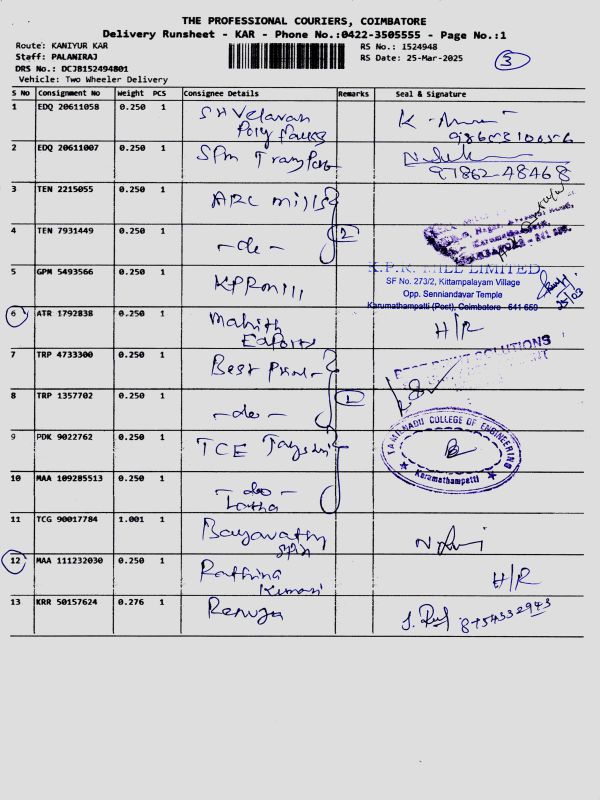 THE PROFESSIONAL COURIERS, COIMBATORE
Delivery Runsheet - KAR - Phone No.:0422-3505555 - Page No.:1
Route: KANIYUR KAR
RS No.: 1524948
Staff: PALANIRAJ
RS Date: 25-Mar-2025
3
DRS No.: DCJB152494801
Vehicle: Two Wheeler Delivery
S No Consignment No Weight PCS Consignee Details Remarks Seal & Signature
1 EDQ 20611058 0.250 1 SH Velavan
Poly
2 EDQ 20611007 0.250 1 SPM Transport
97862-48468
3 TEN 2215055 0.250 1 ARC mills
4 TEN 7931449 0.250 1 -do- 2
5 GPM 5493566 0.250 1 KPR mill
K.P.R. MILL LIMITED
SF No. 273/2, Kittampalayam Village
Opp. Senniandavar Temple
Karumathampatti (Post), Coimbatore - 641 659
25/03
6 ATR 1792838 0.250 1 Mahith
Exports
H/R
7 TRP 4733300 0.250 1 Best Print
SOLUTIONS
8 TRP 1357702 0.250 1 -do- 1
9 PDK 9022762 0.250 1 TCE Jaysri
TAMILNADU COLLEGE OF ENGINEERING
Karamathampatti
10 MAA 109285513 0.250 1 -do-
Latha
11 TCG 90017784 1.001 1
12 MAA 111232030 0.250 1 Rathina
Kumari
H/R
13 KRR 50157624 0.276 1 Renuga
8754332943